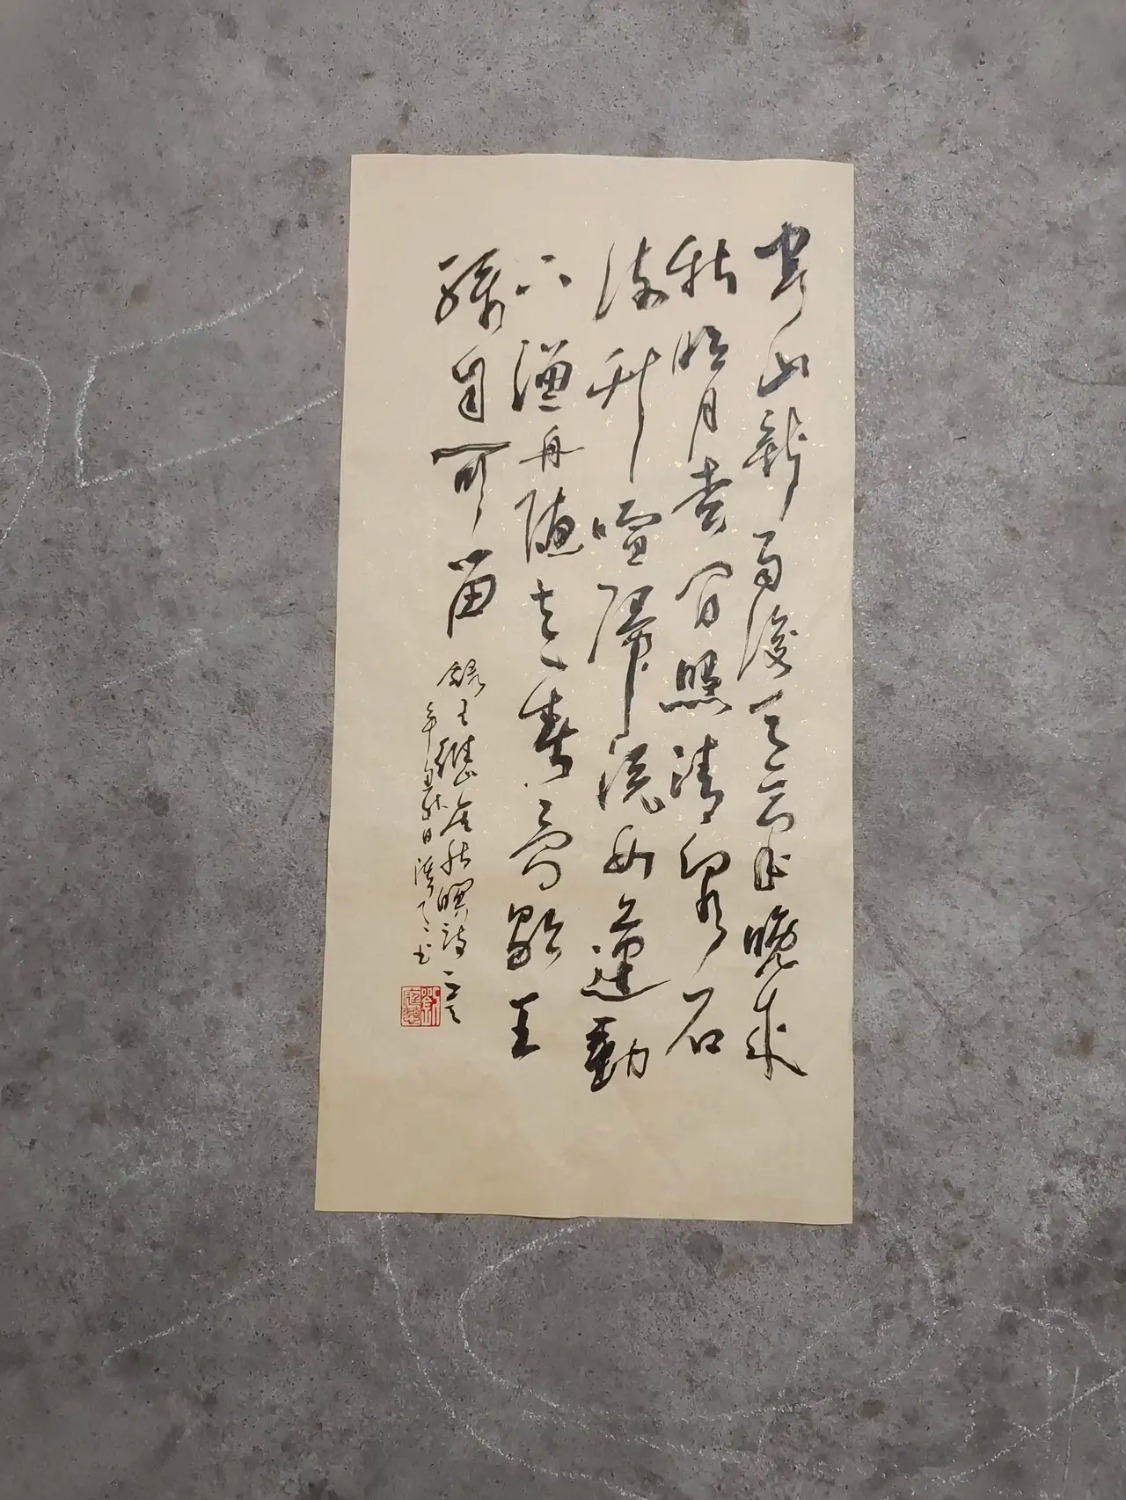 空山新雨後天氣晚來
秋明月松間照清泉石
流竹喧歸浣女蓮動
下漁舟隨意春芳歇王
孫自可留
錄王維山居秋暝詩
年 日 書